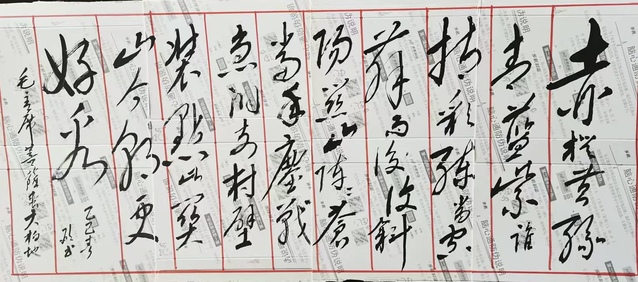 赤橙黄绿
青蓝紫谁
持彩练当空
舞雨后复斜
阳关山阵阵苍
当年鏖战
急洞前村壁
装點此关
山今朝更
好看
毛主席菩萨蛮大柏地
乙巳春